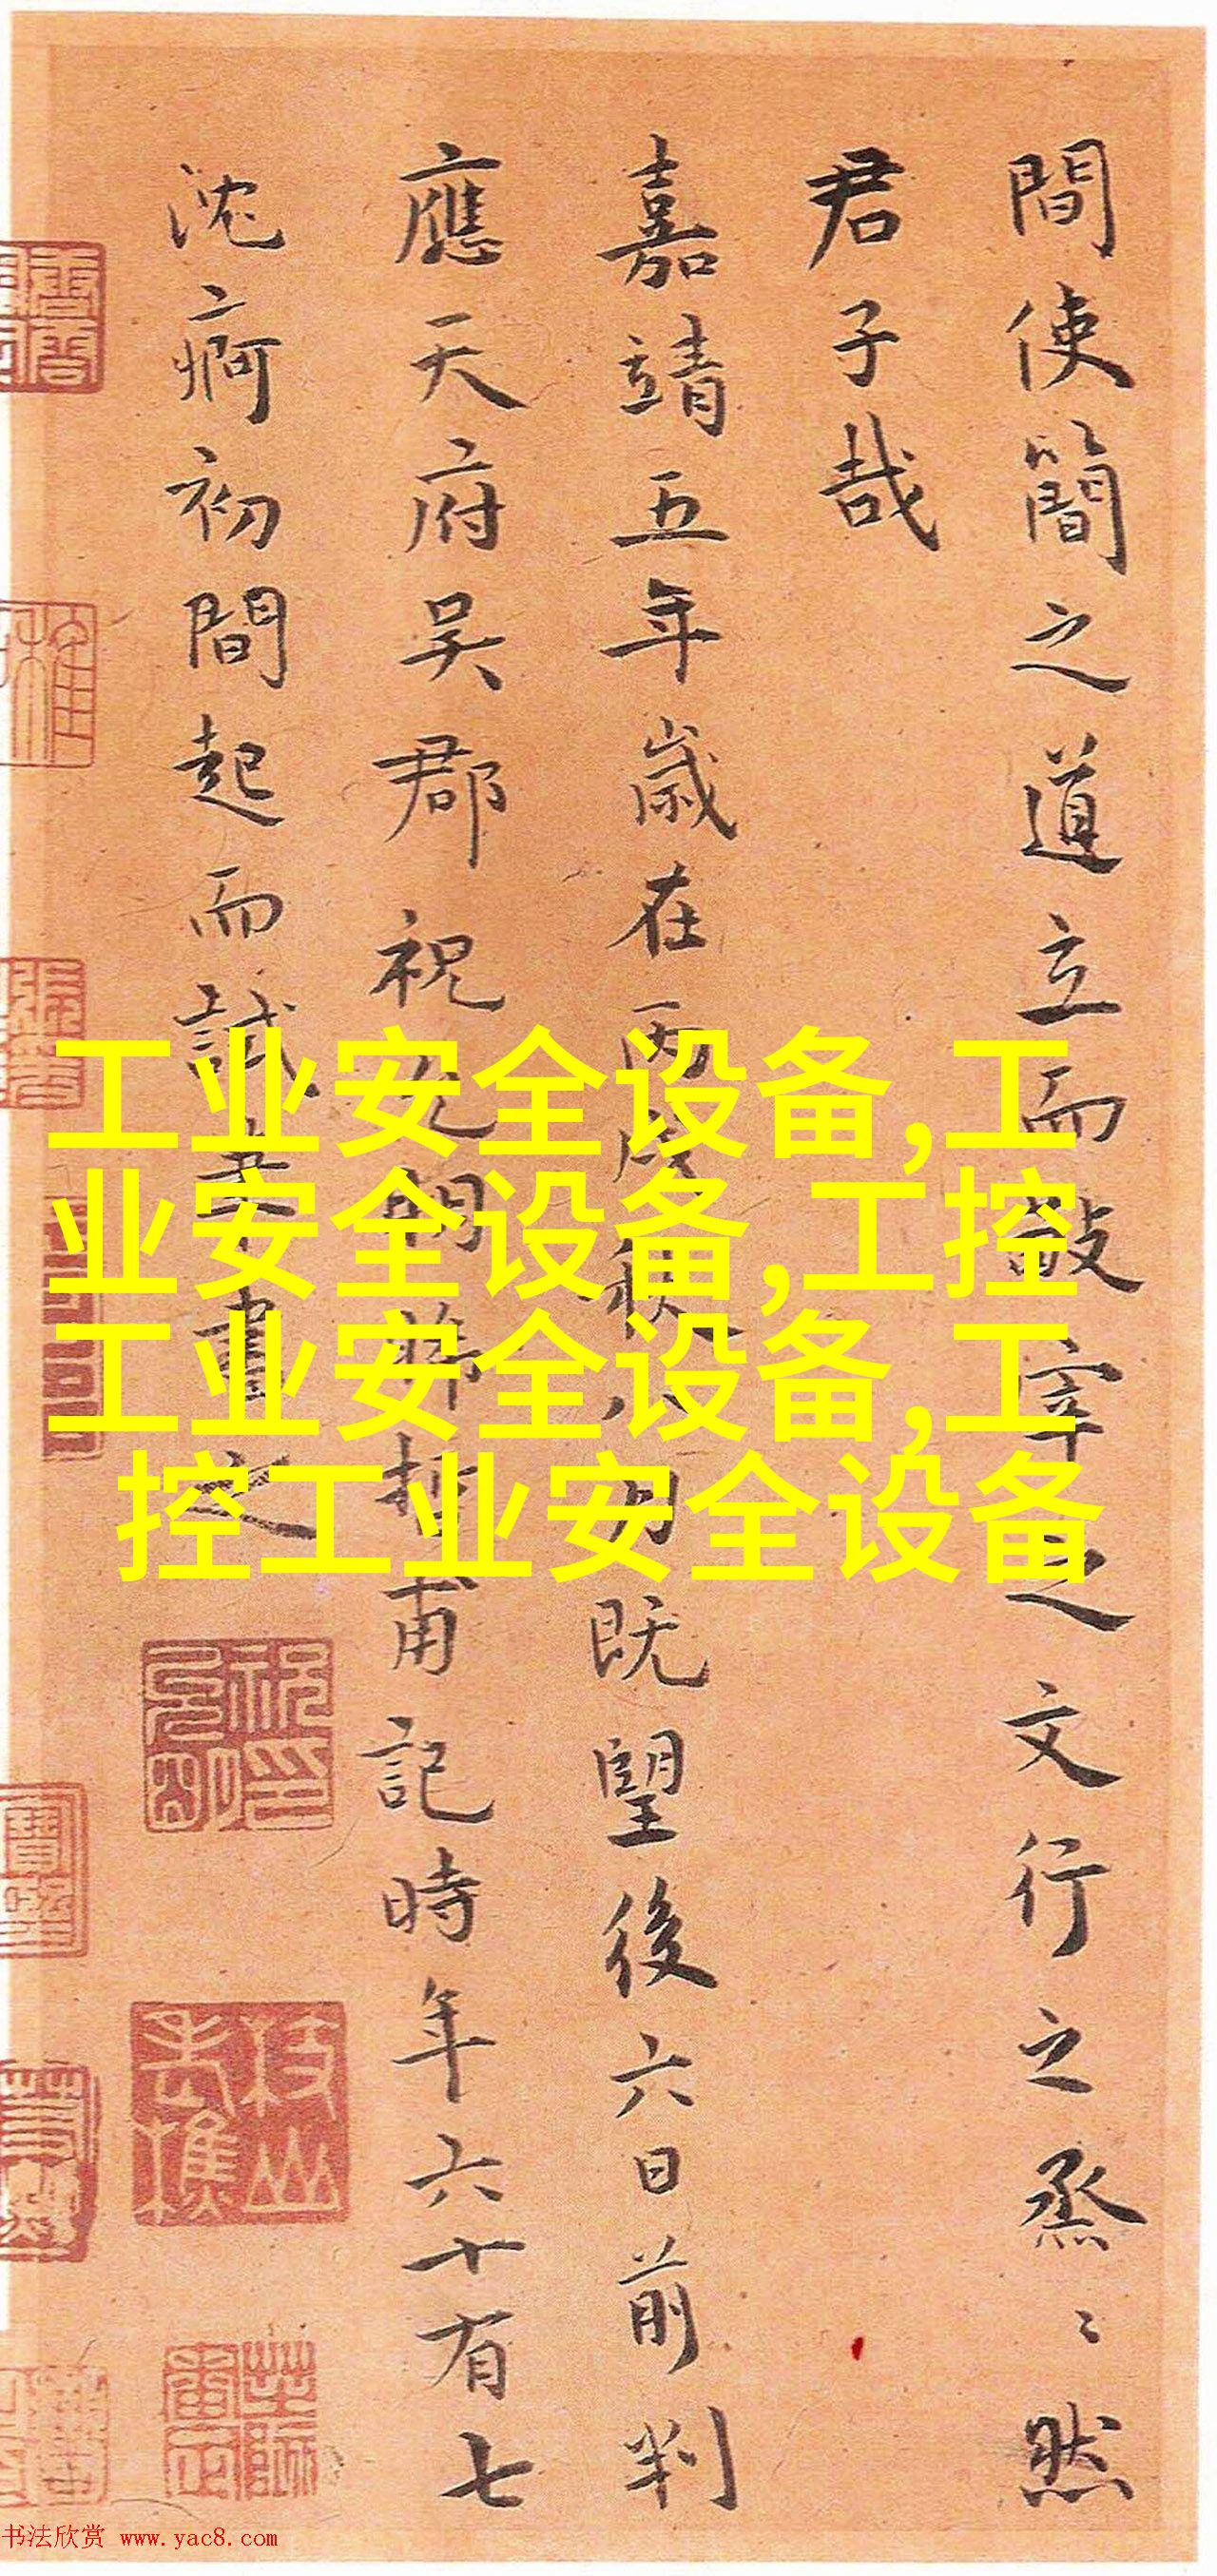 間使簡之道立而敲宰之文行之烝〻然
君子哉
嘉靖五年歲在丙戌秋八月既望後六日前判
應天府吳郡祝允明希哲甫記時年六十有七
沈痾初間起而試書書之
工业安全设备,工
业安全设备,工控
工业安全设备,工
控工业安全设备
书法欣赏 www.yac8.com